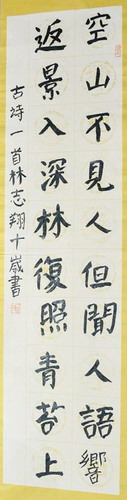 空山不見人但聞人語響
返景入深林復照青苔上
古詩一首林志翔十歲書